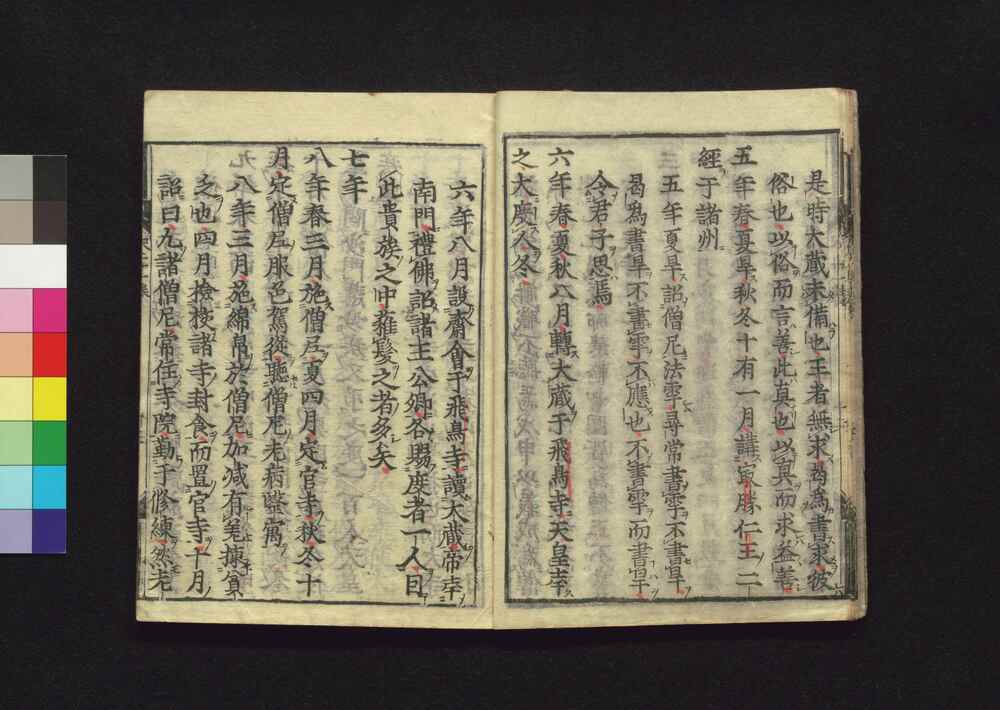 是時大藏未備也王者無求曷為書求彼
俗也以俗而言善此真也以真而求益善
五年春夏旱秋冬十有一月講寂勝仁王二
經于諸州
五年夏旱詔僧尼法雩尋常書雩不書旱
曷為書旱不書雩不應也不書雩而書旱
令君子思焉
六年春夏秋八月轉大藏于飛鳥寺天皇幸
之大慶入冬
六年八月設齋會于飛鳥寺讀大藏帝幸
南門禮佛詔諸王公卿各賜度者一人曰
此貴族之中薙髮之者多矣
七年
八年春三月施僧尼夏四月定官寺秋冬十
月定僧尼服色駕從聽僧尼老病醫寓
八年三月施綿帛於僧尼加減有差揀貧
之也四月撿挍諸寺封食而置官寺十月
詔曰凡諸僧尼常住寺院勤于修練然老